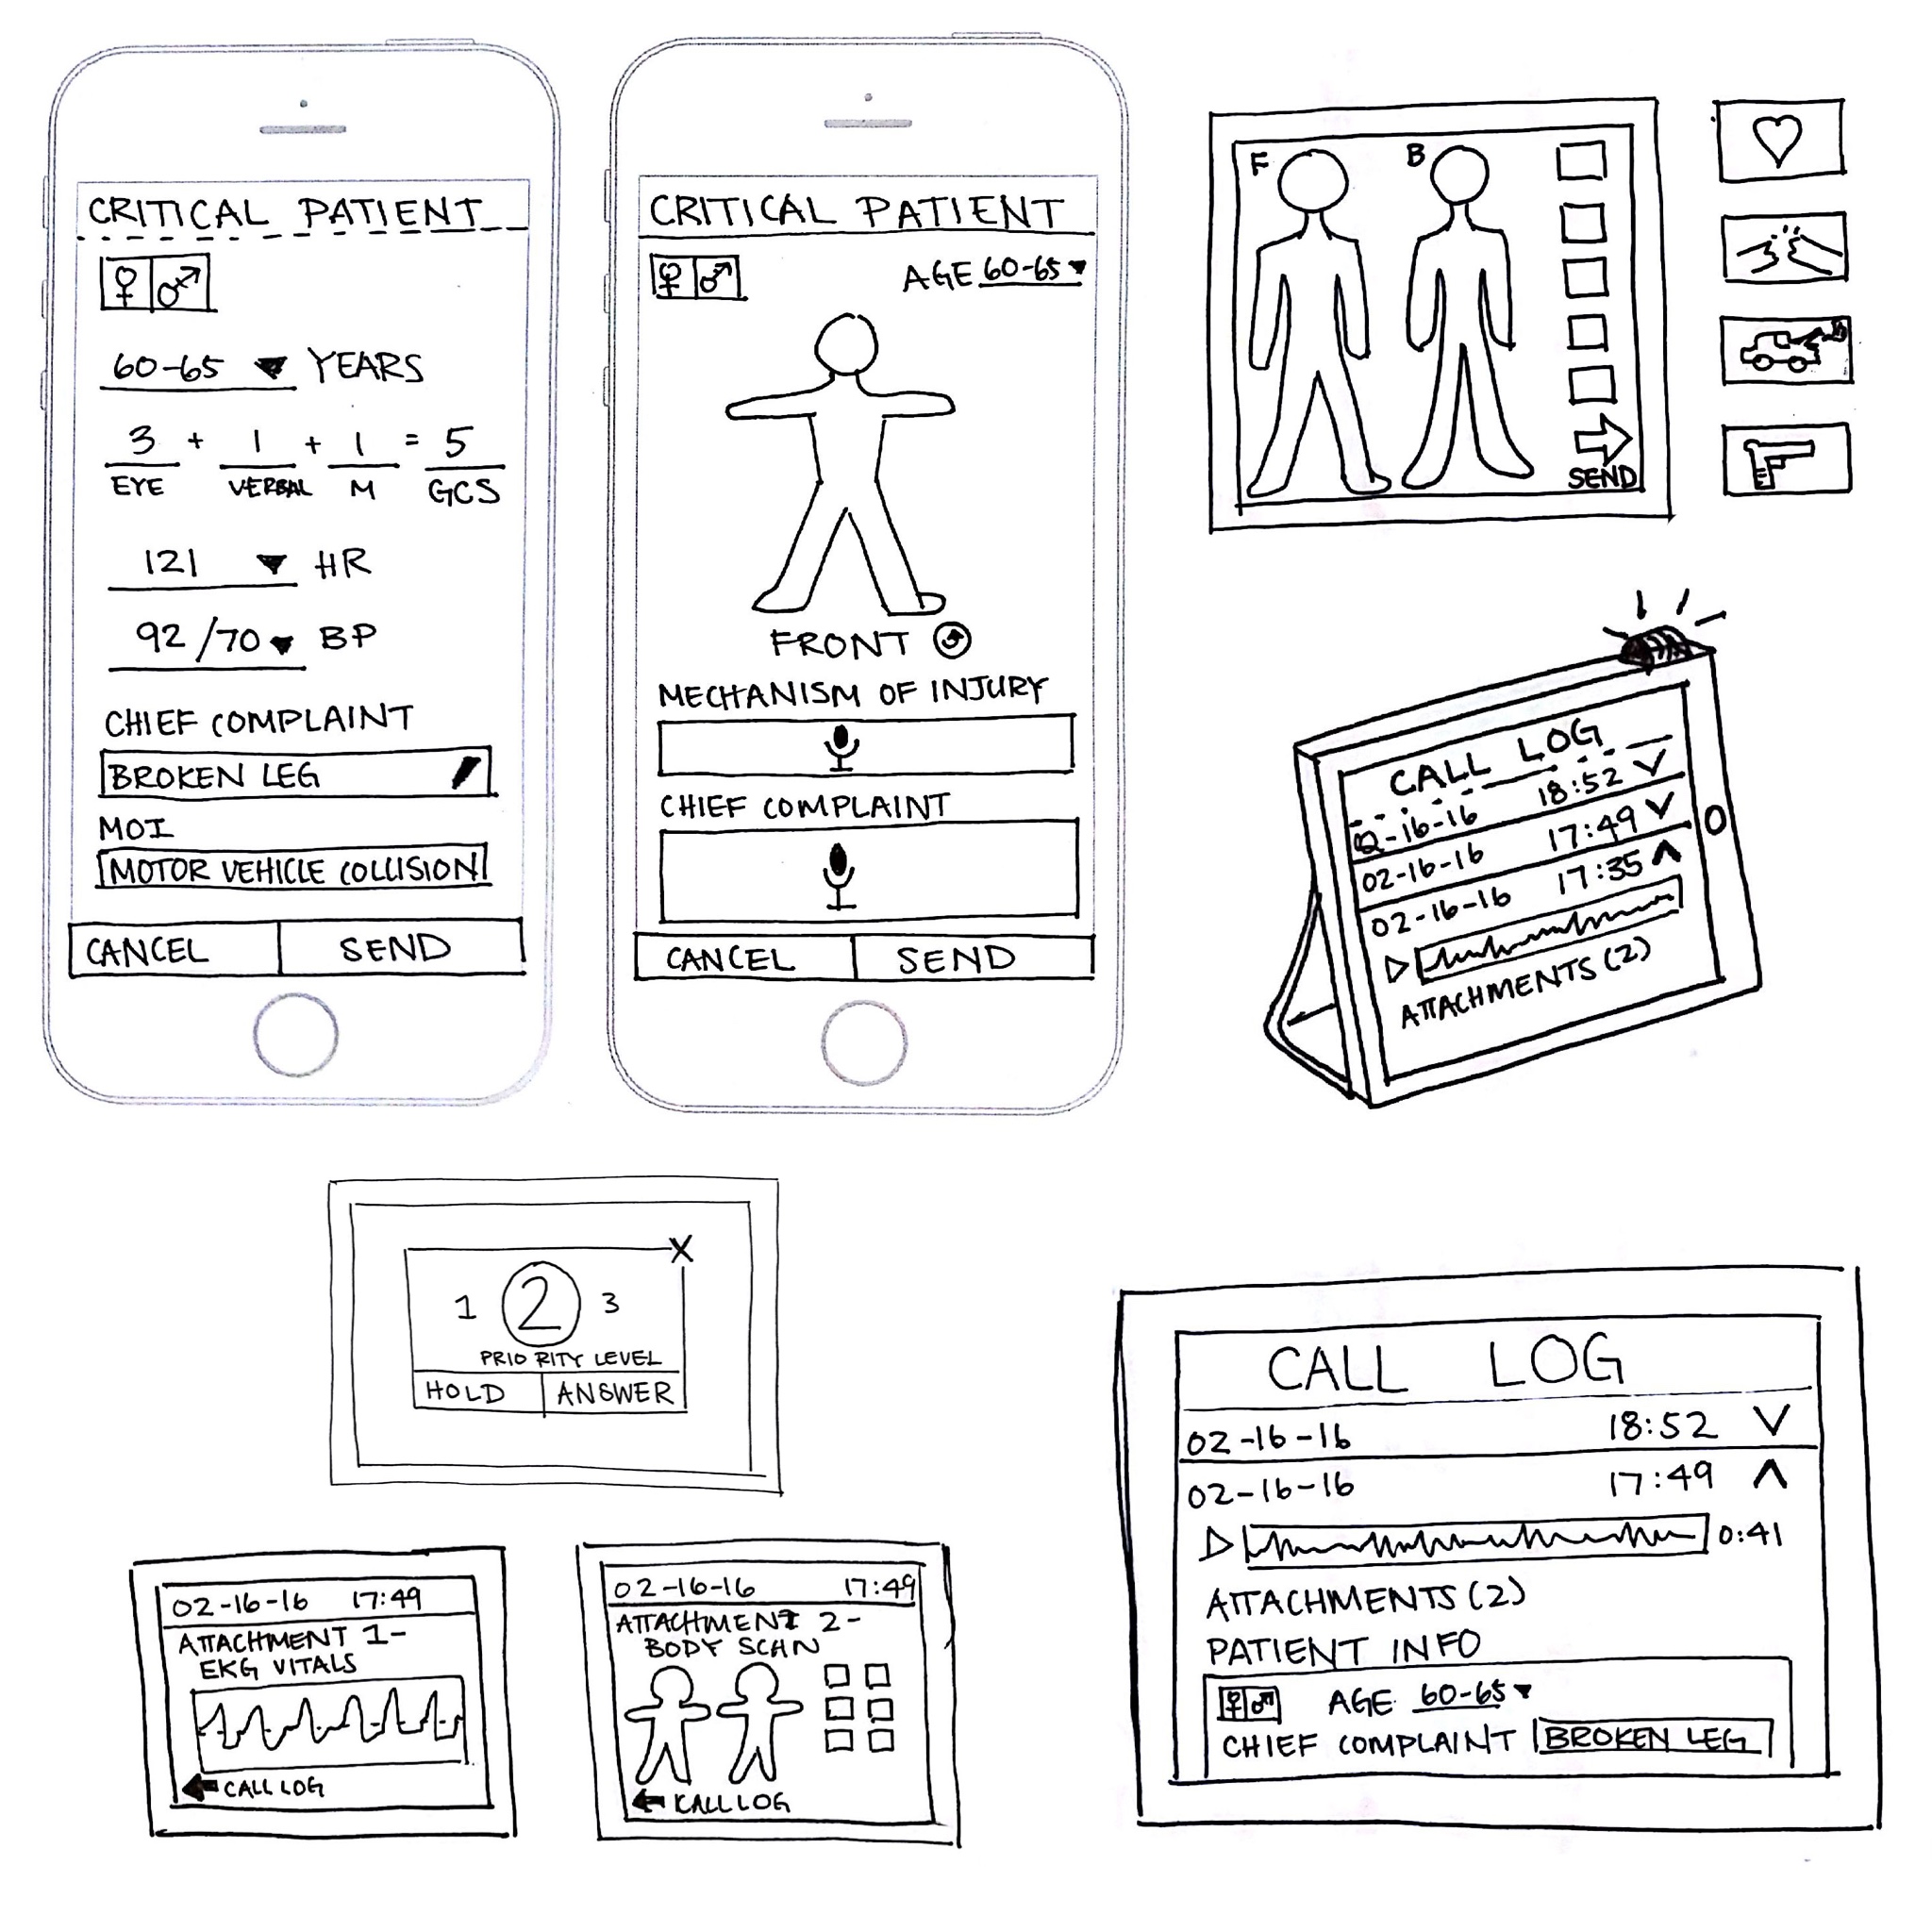 CRITICAL PATIENT
60-65 YEARS
3 + 1 + 1 = 5
EYE VERBAL M GCS
121 HR
92/70 BP
CHIEF COMPLAINT
BROKEN LEG
MOI
MOTOR VEHICLE COLLISION
CANCEL SEND
CRITICAL PATIENT
AGE 60-65
FRONT
MECHANISM OF INJURY
CHIEF COMPLAINT
CANCEL SEND
F B
SEND
CALL LOG
02-16-16 18:52
02-16-16 17:49
02-16-16 17:35
ATTACHMENTS (2)
X
1 2 3
PRIORITY LEVEL
HOLD ANSWER
02-16-16 17:49
ATTACHMENT 1-
EKG VITALS
CALL LOG
02-16-16 17:49
ATTACHMENT 2-
BODY SCAN
CALL LOG
CALL LOG
02-16-16 18:52
02-16-16 17:49
0:41
ATTACHMENTS (2)
PATIENT INFO
AGE 60-65
CHIEF COMPLAINT BROKEN LEG